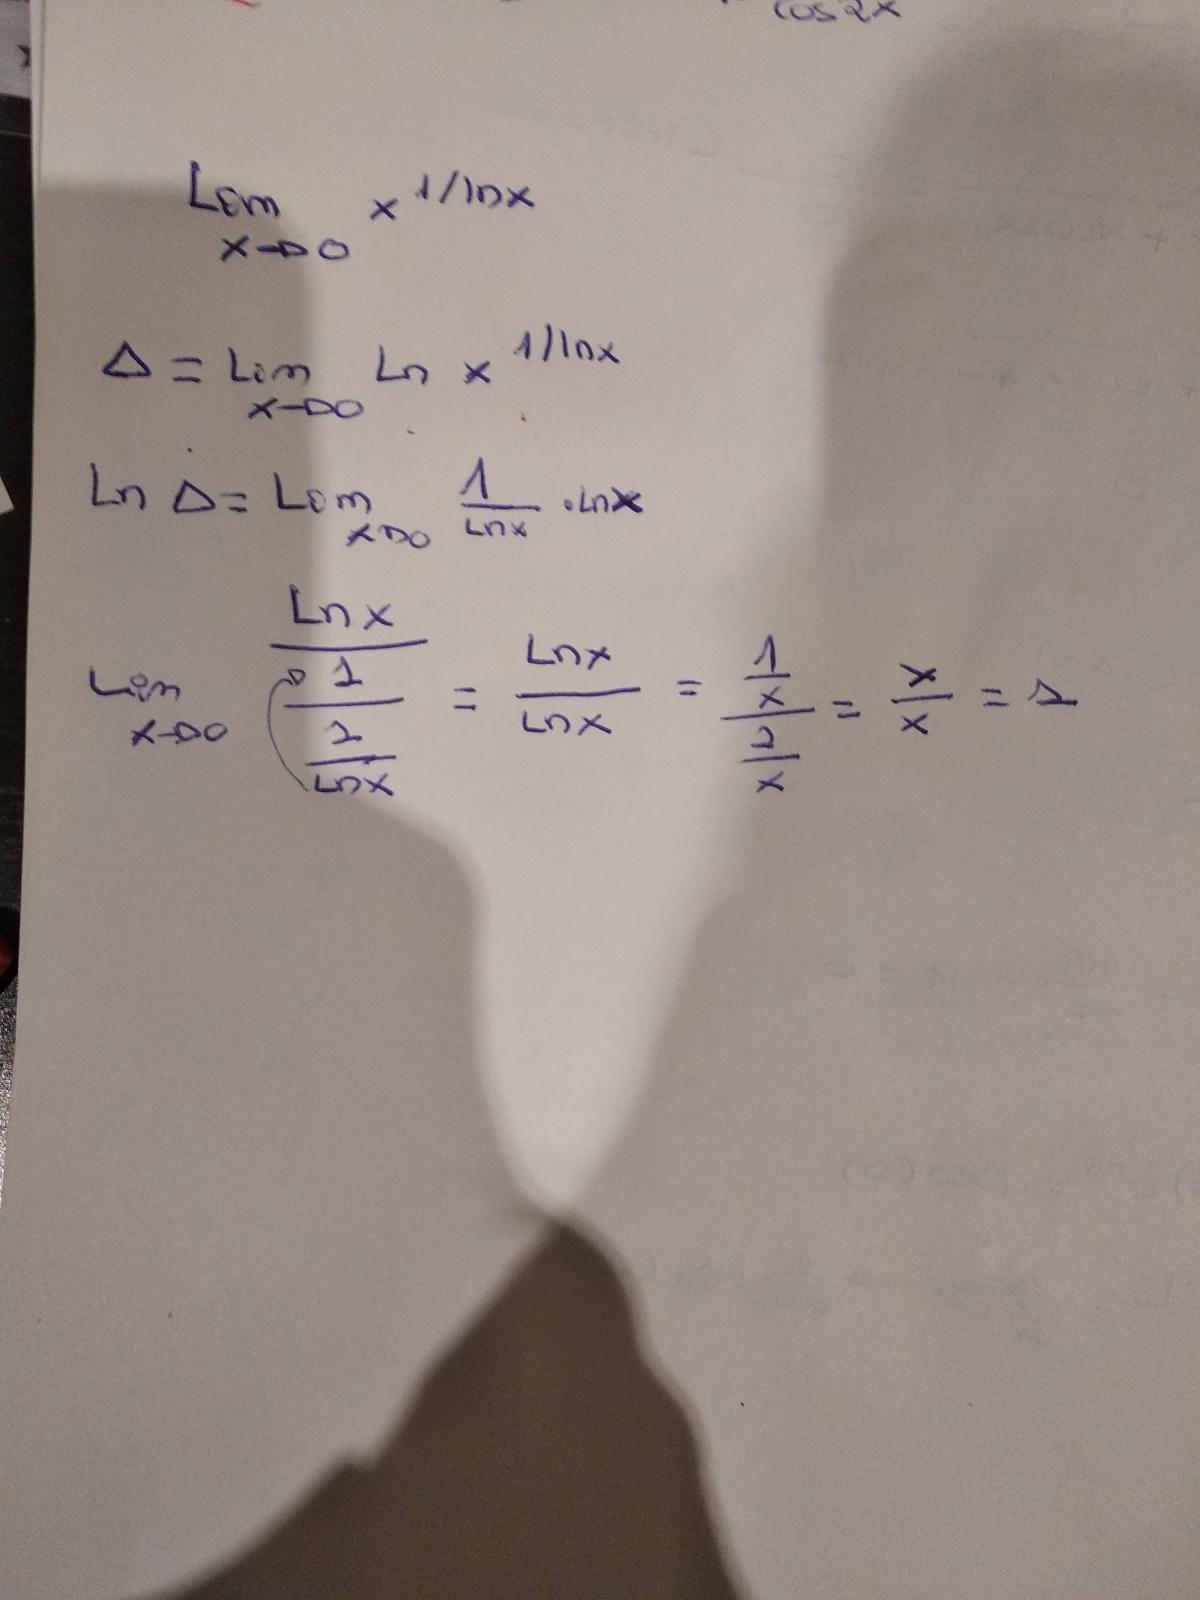 cos2x
Lim x→0 x^1/lnx
Δ = Lim x→0 Ln x^1/lnx
Ln Δ = Lim x→0 1/Lnx · Lnx
Lim x→0 Lnx/(1/(1/Lnx)) = Lnx/Lnx = (1/x)/(1/x) = x/x = 1